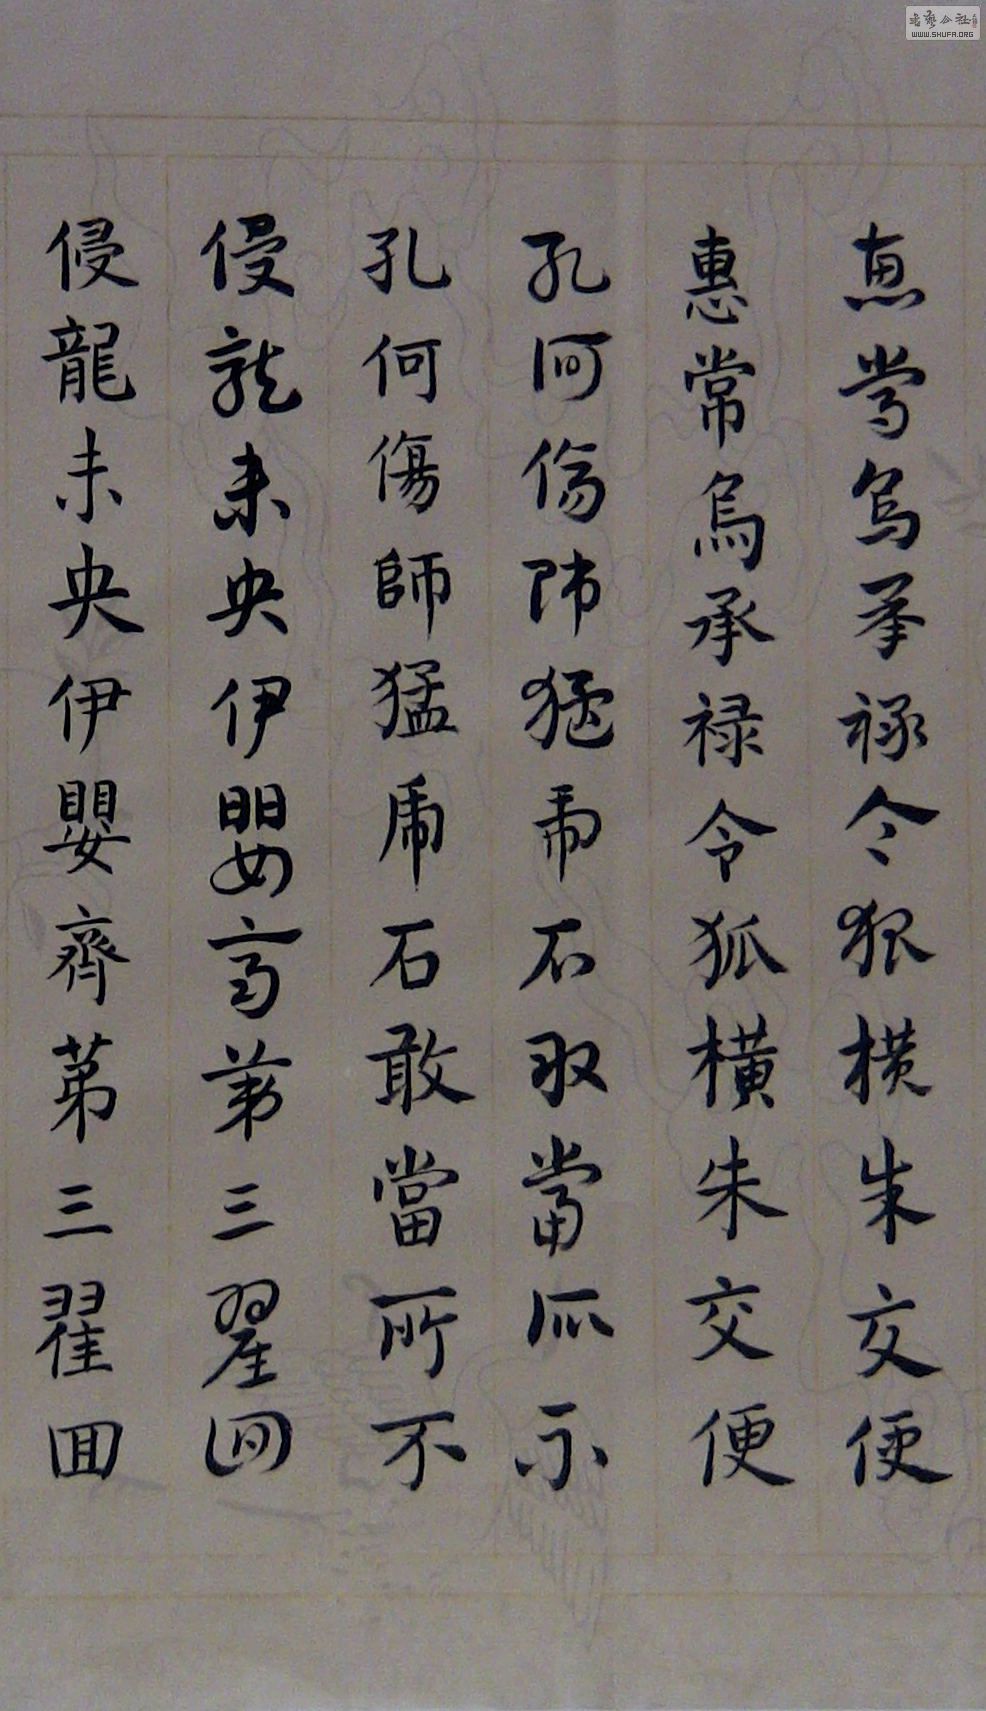 惠常烏承禄令狐橫朱交便
惠常烏承禄令狐橫朱交便
孔何傷師猛虎石敢當所不
孔何傷師猛虎石敢當所不
侵龍未央伊嬰齊苐三翟回
侵龍未央伊嬰齊苐三翟回
WWW.SHUFA.ORG